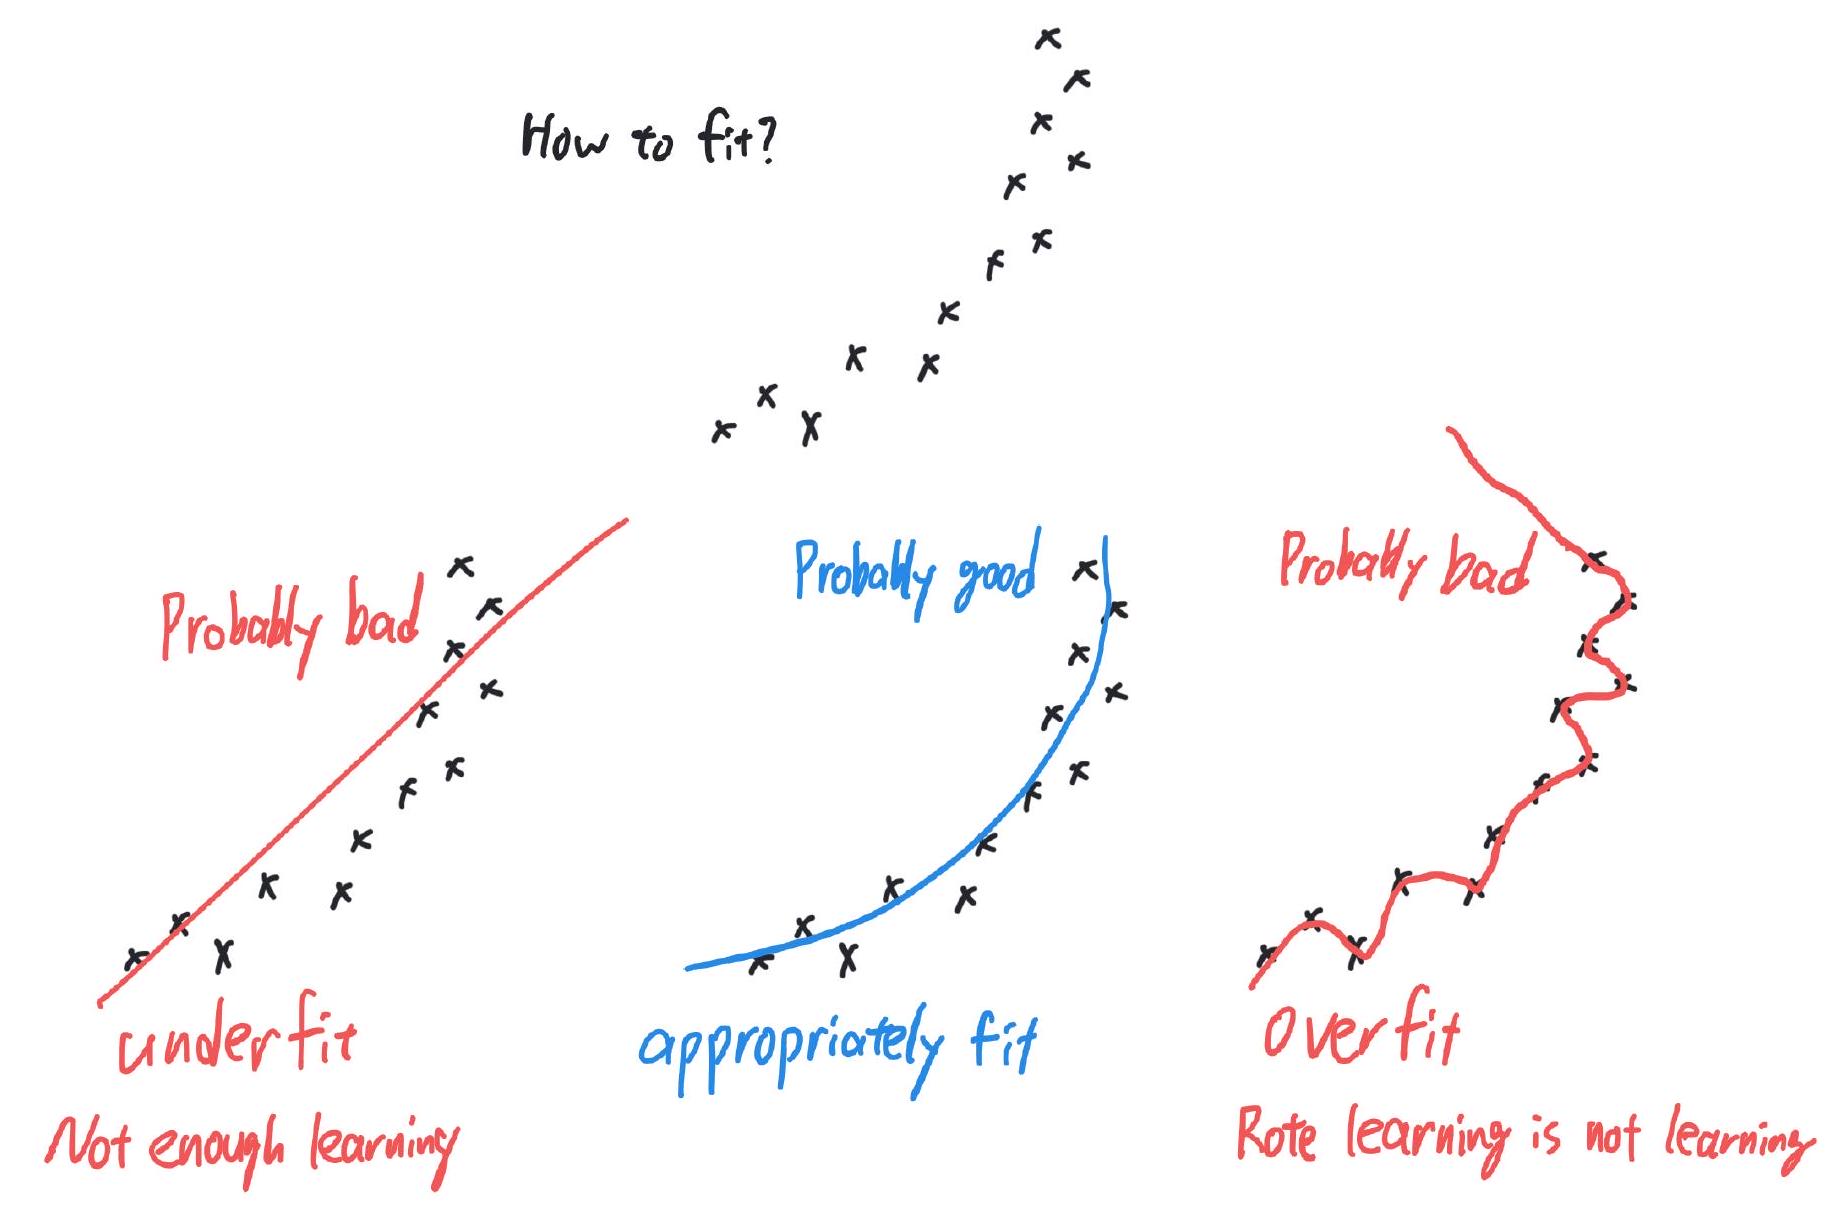 How to fit?
Probably bad
underfit
Not enough learning
Probably good
appropriately fit
Probably bad
Overfit
Rote learning is not learning